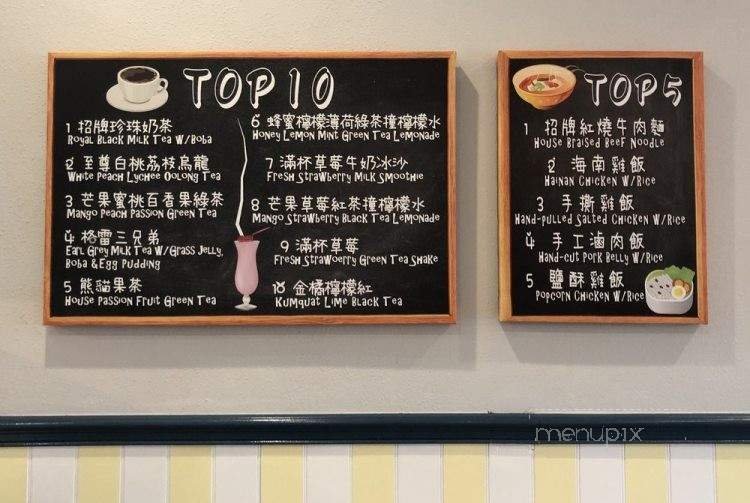 TOP 10
1 招牌珍珠奶茶
Royal Black Milk Tea W/Boba
2 至尊白桃荔枝烏龍
White Peach Lychee Oolong Tea
3 芒果蜜桃百香果綠茶
Mango Peach Passion Green Tea
4 格雷三兄弟
Earl Grey Milk Tea W/Grass Jelly,
Boba & Egg Pudding
5 熊貓果茶
House Passion Fruit Green Tea
6 蜂蜜檸檬薄荷綠茶撞檸檬水
Honey Lemon Mint Green Tea Lemonade
7 滿杯草莓牛奶冰沙
Fresh Strawberry Milk Smoothie
8 芒果草莓紅茶撞檸檬水
Mango Strawberry Black Tea Lemonade
9 滿杯草莓
Fresh Strawberry Green Tea Shake
10 金橘檸檬紅
Kumquat Lime Black Tea
TOP 5
1 招牌紅燒牛肉麵
House Braised Beef Noodle
2 海南雞飯
Hainan Chicken W/Rice
3 手撕雞飯
Hand-pulled Salted Chicken W/Rice
4 手工滷肉飯
Hand-cut Pork Belly W/Rice
5 鹽酥雞飯
Popcorn Chicken W/Rice
menupix